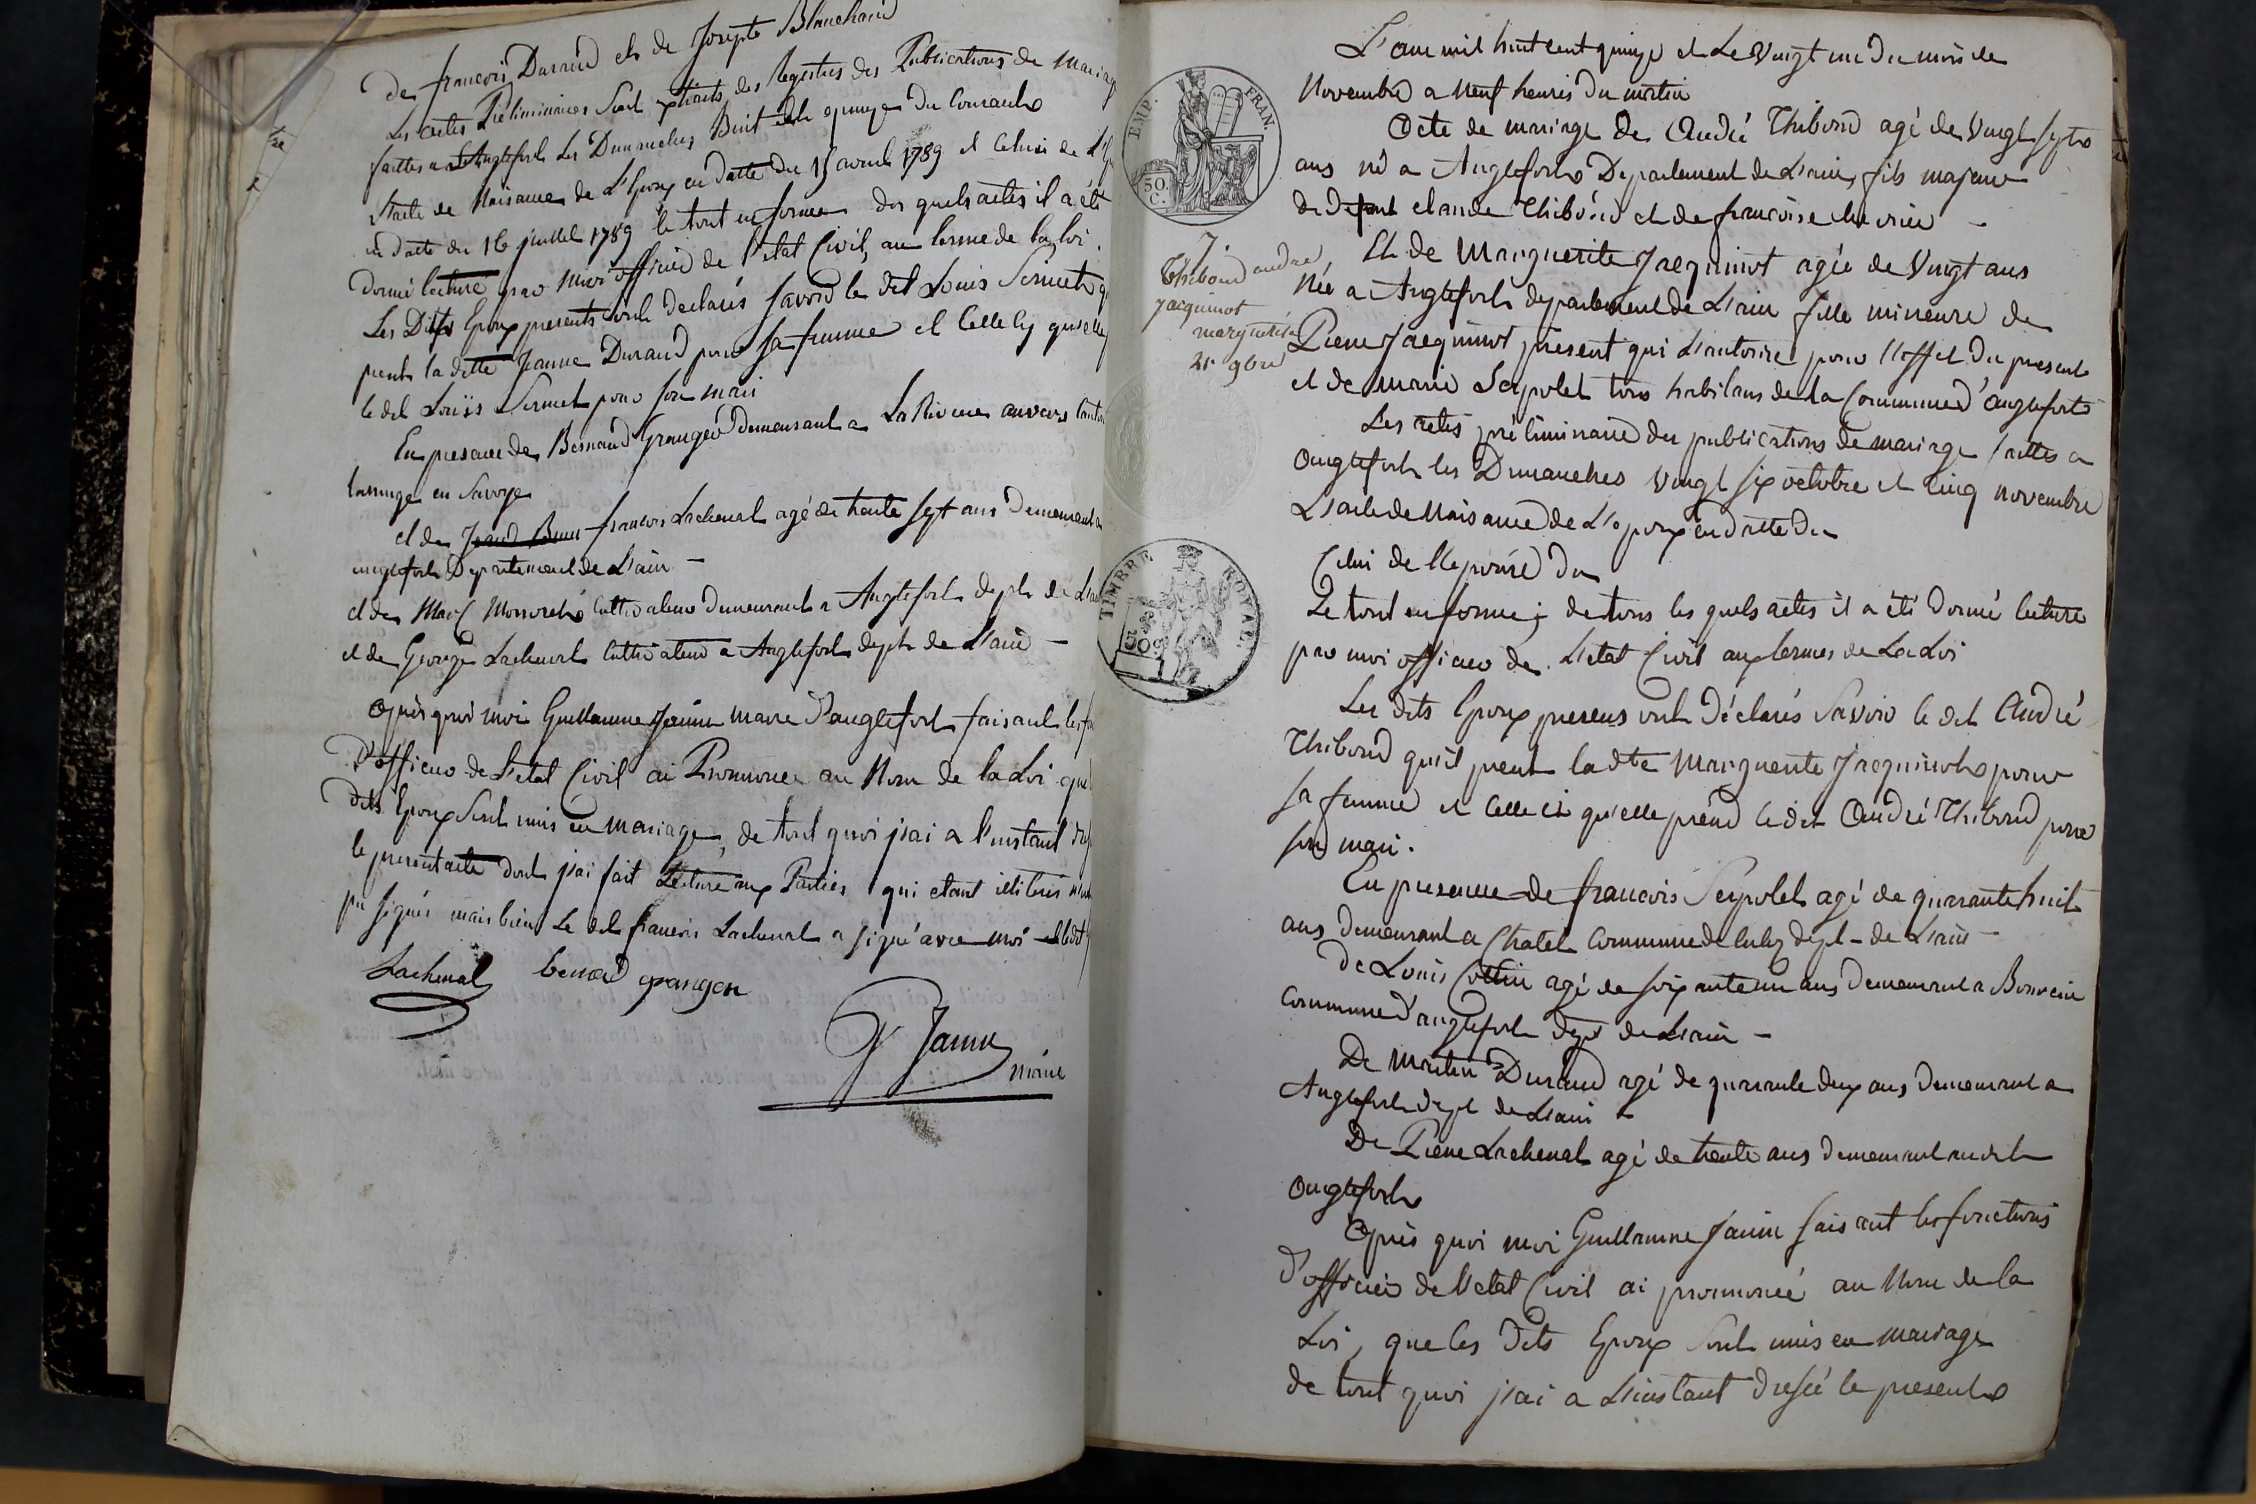 de francois Durand et de Josepte Blanchard
Les actes Préliminaires Sont extraits des Registres des Publications de mariage
faittes a Anglefort les Dimanches Huit et quinze du Courant
l'acte de Naisance de L'Epoux en datte du 15 avril 1789 et Celui de L'
en datte du 16 juillet 1789 le tout en forme des quels actes il a été
donné lecture par moi officier de l'etat Civil, au terme de la loi.
Les Dits Epoux presents ont declarés Savoir le dit Louis Sermet
prent la ditte Jeanne Durand pour sa femme et Celle Cy qu'elle
le dit Louis Sermet pour son mari
En presance de Bernard Granger demeurant a La Riviere
en Savoye
et de francois Lachenal agé de trente sept ans demeurant a
anglefort Departement de L'ain
et de Marc cultivateur demeurant a Anglefort dept de L'ain
et de George Lachenal cultivateur a Anglefort dept de L'ain
Après quoi moi Guillaume Janin maire d'anglefort faisant les
D'officier de l'etat Civil ai Prononcé au Nom de la Loi que
dits Epoux Sont unis en mariage, de tout quoi j'ai a l'instant
le present acte dont j'ai fait Lecture aux Parties qui etant illitérés
pu signer mais bien Le dit francois Lachenal a signé avec moi
Lachenal benard grangen
G Janin
maire
L'an mil huit cent quinze et Le Vingt un du mois de
Novembre a Neuf heures du matin
Acte de mariage de André Thiboud agé de Vingt sept
ans né a Anglefort Departement de L'ain, fils majeur
de defunt claude Thiboud et de francoise
Et de Marguerite Jacquinot agée de Vingt ans
Née a Anglefort departement de L'ain fille mineure de
Pierre Jacquinot présent qui L'autorise pour l'effet du present
et de marie Seyvolet tous habitans de la Commune d'anglefort
Les actes préliminaire des publications de mariage faittes a
Anglefort les Dimanches Vingt six octobre et Cinq novembre
L'acte de Naisance de L'epoux en datte du
Celui de l'epouse du
Le tout en forme; de tous les quels actes il a été donné lecture
par moi officier de L'etat Civil aux termes de La Loi
Les dits Epoux presens ont déclarés Savoir le dit André
Thiboud qu'il prent la dte Marguerite Jacquinot pour
sa femme et Celle ci qu'elle prend le dit André Thiboud pour
son mari.
En presence de francois Seyvolet agé de quarante huit
ans demeurant a Chatel Commune de dept de L'ain
De Louis Collin agé de soixante un ans demeurant a
Commune d'anglefort dept de L'ain
De Martin Durand agé de quarante deux ans demeurant a
Anglefort dept de L'ain
De Pierre Lachenal agé de trente ans demeurant audit
Anglefort
Après quoi moi Guillaume Janin faisant les fonctions
d'officier de l'etat Civil ai prononcé au Nom de la
Loi, que les Dits Epoux Sont unis en mariage
de tout quoi j'ai a L'instant dressé le present
EMP. FRAN.
50.
C.
7.
Thiboud andré
Jacquinot
marguerite
21 9bre
TIMBRE ROYAL.
50c